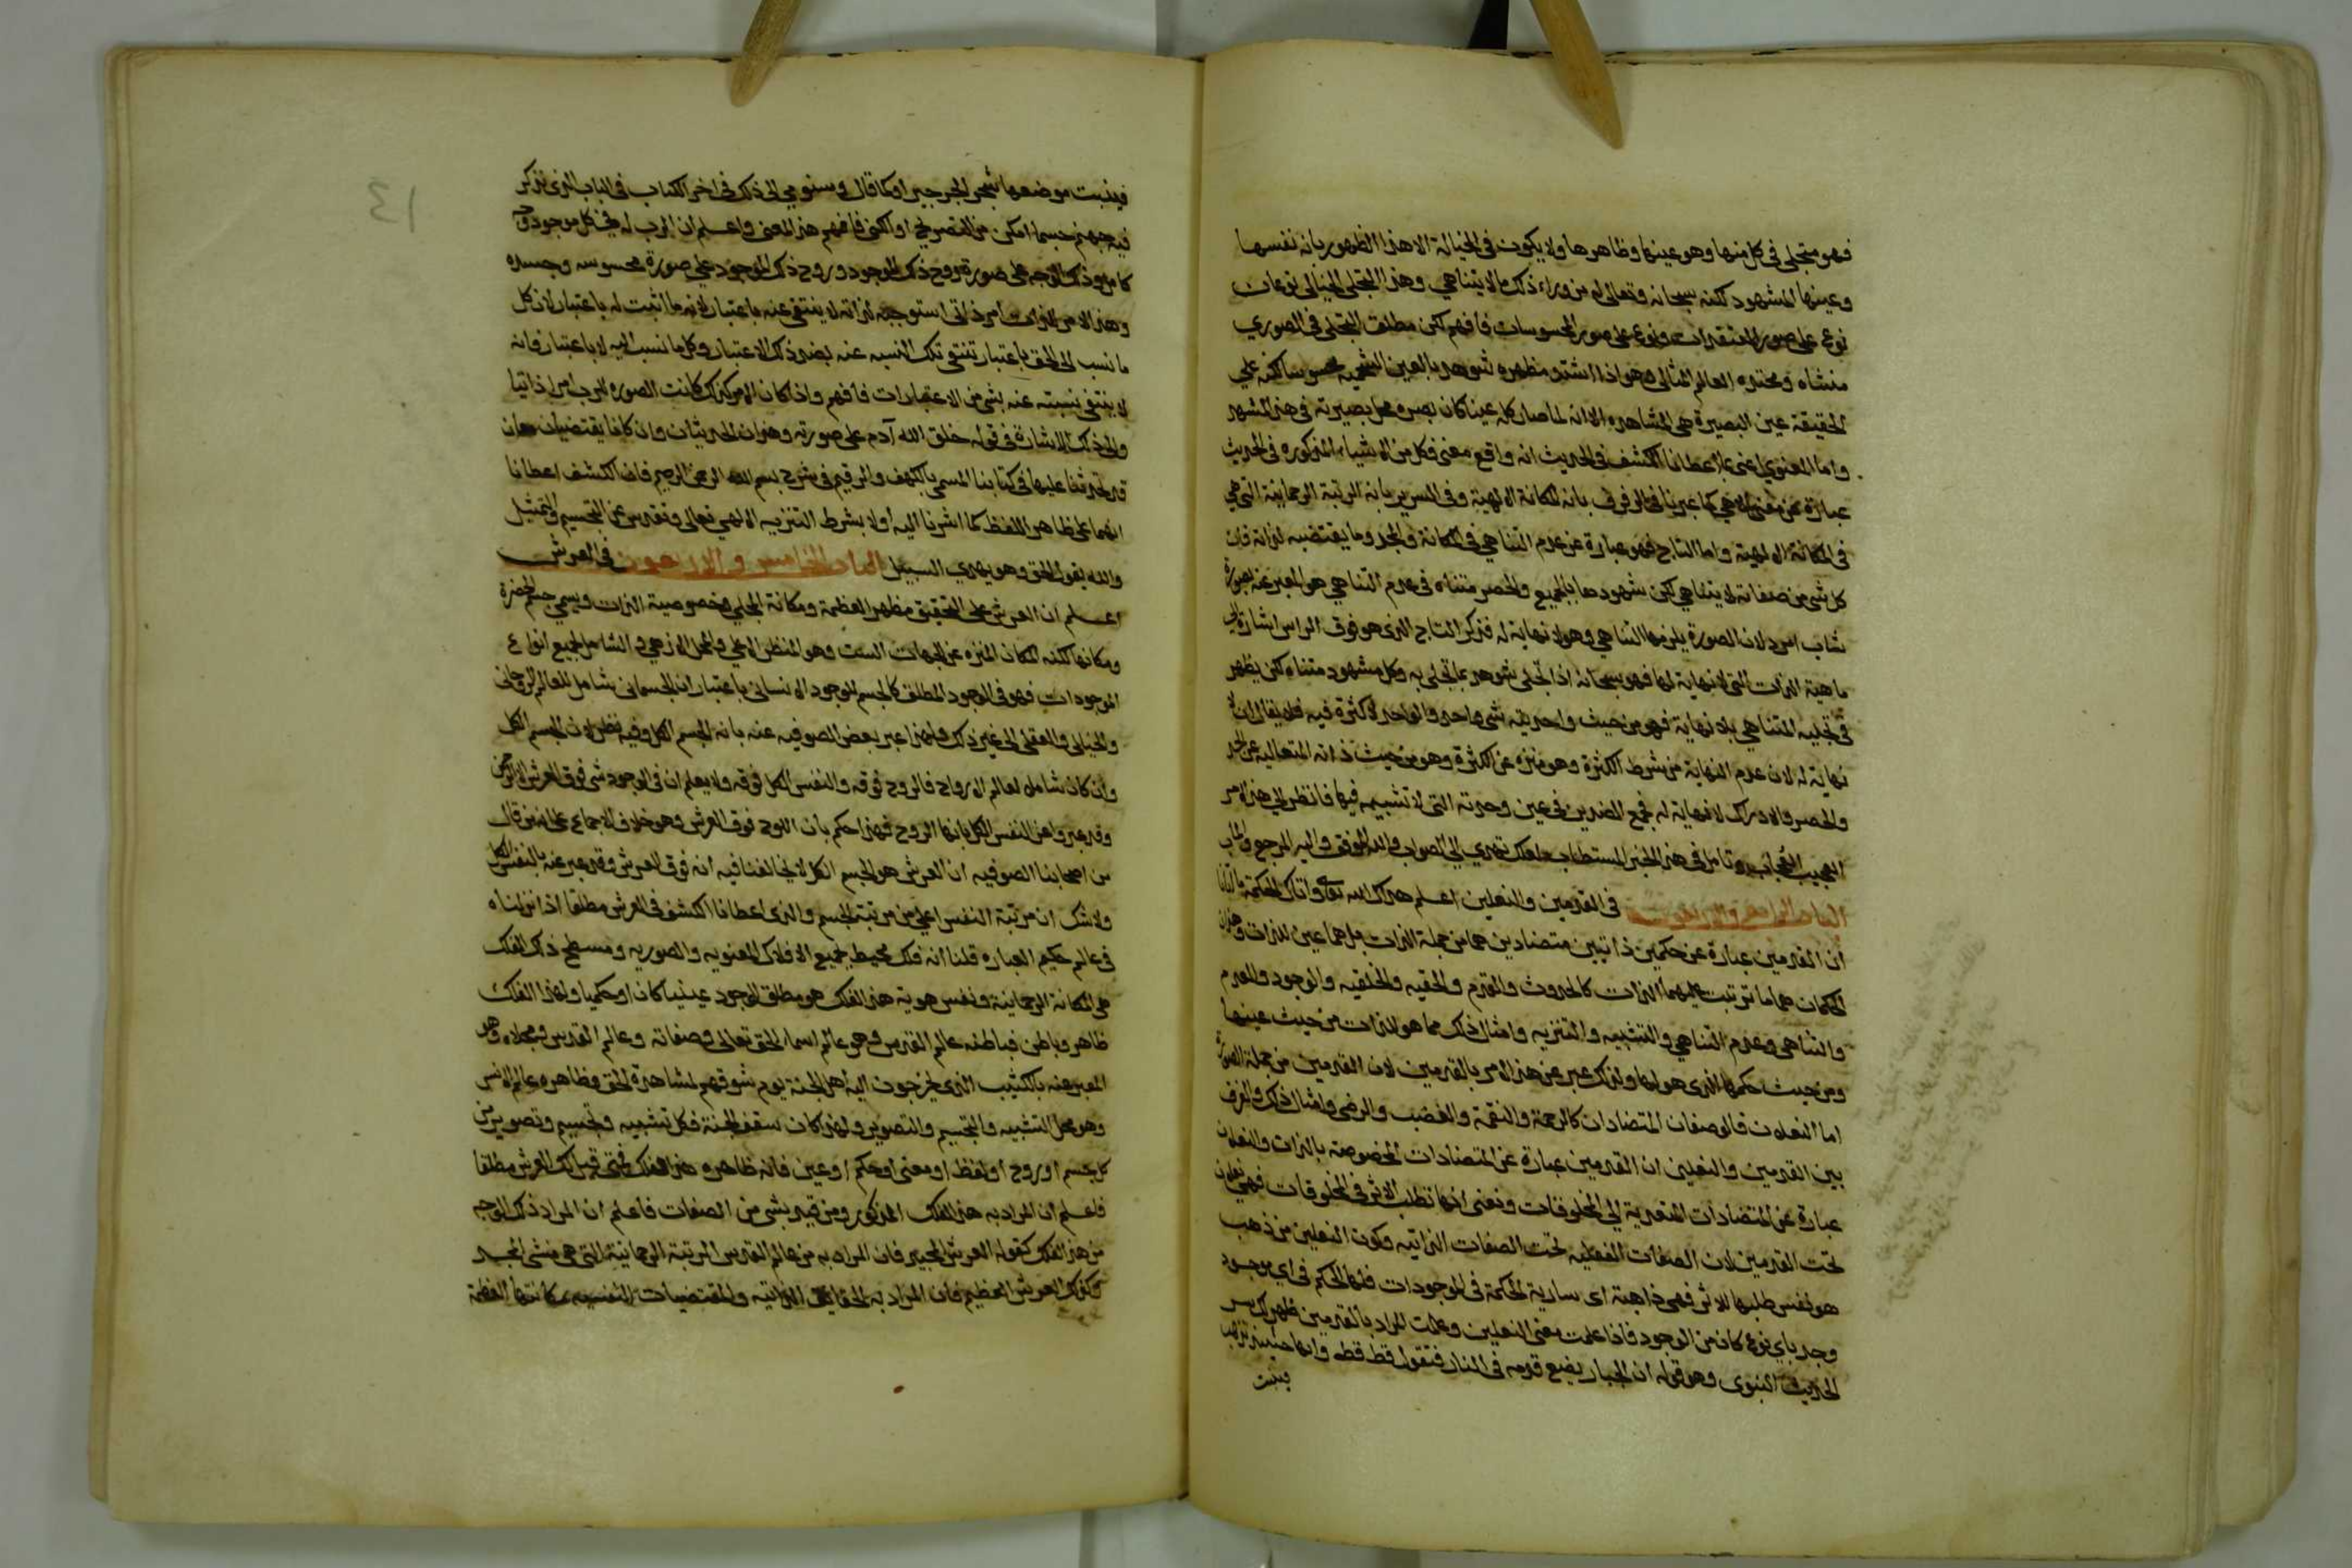 فهو متجلى فى كل منها وهو عينها وظاهرها ولا يكون فى الخيالة الا هذا الظهور بانه نفسها
وعينها المشهود لكنه سبحانه وتعالى له من وراء ذلك ما لا يتناهي وهذا التجلى الخيالى نوعان
نوع على صور المعتقدات ونوع على صور المحسوسات فافهم لكن مطلق التجلى فى الصورى
منشاه ومحتده العالم المثالى وهو اذا اشتد مظهره شوهد بالعين الشحميه محسوسا لكنه على
الحقيقة عين البصيرة هى المشاهده الا انه لما صار كله عينا كان بصره محل بصيرته فى هذا المشهد
واما المعنوي اعنى ما اعطانا الكشف فى الحديث انه واقع معنى فكل من الاشياء المذكوره فى الحديث
عبارة عن معنى الهي كما عبرنا فى الرفرف بانه المكانة الالهية وفى السرير بانه الرتبة الرحمانية التى هي
فى المكانة الالهية واما التاج فهو عبارة عن عدم التناهي فى المكانة والمجد وما يقتضيه لذاته فان
كل شى من صفاته لا يتناهي لكن شهودها بالجميع والحصر متناه فى عدم التناهي هو المعبر عنه بصورة
شاب امرد لان الصورة يلزمها التناهي وهو لا نهاية له فذكر التاج الذى هو فوق الراس اشارة الى
ماهية الذات التى لا نهاية لها فهو سبحانه اذا تجلى شوهد بما تجلى به وكل مشهود متناه لكن يظهر
فى تجليه المتناهي بلا نهاية فهو من حيث واحديته شى واحد والواحد لا كثرة فيه فلا يقال انه لا
نهاية له لان عدم النهاية من شرط الكثرة وهو منزه عن الكثرة وهو من حيث ذاته المتعاليه عن الحد
والحصر والادراك لا نهاية له فجمع الضدين فى عين وحدته التى لا تشبيه فيها فانظر الى هذا الامر
العجيب العجاب وتامل فى هذا الخبر المستطاب لعلك تهتدى الى الصواب والله الموفق واليه المرجع والماب
الباب الرابع والاربعون فى القدمين والنعلين اعلم هداك الله تعالى واتاك الحكمة
ان القدمين عبارة عن حكمين ذاتيين متضادين هما من جملة الذات بل هما عين الذات وهذان
الحكمان هما ما ترتبت عليهما الذات كالحدوث والقدم والحقيه والخلقيه والوجود والعدم
والتناهى وعدم التناهي والتشبيه والتنزيه وامثال ذلك مما هو للذات من حيث عينها
ومن حيث حكمها الذى هو لها ولذلك عبر عن هذا الامر بالقدمين لان القدمين من جملة الصورة
اما النعلان فالوصفان المتضادان كالرحمة والنقمة والغضب والرضى وامثال ذلك والفرق
بين القدمين والنعلين ان القدمين عبارة عن المتضادات المخصوصة بالذات والنعلان
عبارة عن المتضادات المتعدية الى المخلوقات ونعنى انها تطلب الاثر فى المخلوقات فهى نعلان
تحت القدمين لان الصفات الفعليه تحت الصفات الذاتيه وكون النعلين من ذهب
هو نفس طلبها للاثر فهى ذاهبة اى سارية الحكمة فى الموجودات فلها الحكم فى اى موجود
وجد باى نوع كان من الوجود فاذا علمت معنى النعلين وعلمت المراد بالقدمين ظهر لك سر
الحديث النبوى وهو قوله ان الجبار يضع قدمه فى النار فتقول قط قط وانها حينئذ تذهب
فينبت
فينبت موضعها شجر الجرجير او كما قال وسنومى الى ذلك فى اخر الكتاب فى الباب الذى نذكر
فيه جهنم حسبما امكن من التصريح او الكنى فافهم هذا المعنى واعلم ان الرب له فى كل موجود وجه
كامل وذلك الوجه على صورة روح ذلك الموجود وروح ذلك الموجود على صورة محسوسه وجسده
وهذا الامر للذات امر ذاتى استوجبه لذاته لا ينتفى عنه باعتبار لانه ما اثبت له باعتبار لان كل
ما نسب الى الحق باعتبار تنتفى تلك النسبه عنه بضد ذلك الاعتبار وكل ما نسب اليه لا باعتبار فانه
لا ينتفى نسبته عنه بشى من الاعتبارات فافهم واذا كان الامر كذلك كانت الصوره للرب امرا ذاتيا
والى ذلك الاشارة فى قوله خلق الله آدم على صورته وهذان الحديثان وان كانا يقتضيان معان
قد تحدثنا عليها فى كتابنا المسمى بالكهف والرقيم فى شرح بسم الله الرحمن الرحيم فان الكشف اعطانا
انهما على ظاهر اللفظ كما اشرنا اليه اولا بشرط التنزيه الالهى تعالى وتقدس عن التجسيم والتمثيل
والله يقول الحق وهو يهدى السبيل الباب الخامس والاربعون فى العرش
اعلم ان العرش على التحقيق مظهر العظمة ومكانة التجلى وخصوصية الذات ويسمى جسم الحضرة
ومكانها لكنه المكان المنزه عن الجهات الست وهو المنظر الاعلى والمحل الازهى والشامل لجميع انواع
الموجودات فهو فى الوجود المطلق كالجسم للوجود الانسانى باعتبار ان الجسمانى شامل للعالم الروحانى
والخيالى والعقلى الى غير ذلك ولهذا عبر بعض الصوفيه عنه بانه الجسم الكل وفيه نظر لان الجسم الكل
وان كان شاملا لعالم الارواح فالروح فوقه والنفس الكل فوقه ولا يعلم ان فى الوجود شى فوق العرش الا الرحمن
وقد عبروا عن النفس الكل بانها اللوح فهذا حكم بان اللوح فوق العرش وهو خلاف الاجماع على ان من قال
من اصحابنا الصوفيه ان العرش هو الجسم الكل لا يخالفنا فيه انه فوق العرش وقد عبر عنه بالنفس الكل
ولا شك ان مرتبة النفس اعلى من مرتبة الجسم والذى اعطانا الكشف فى العرش مطلقا اذا نزلناه
فى عالم حكم العباره قلنا انه فلك محيط بجميع الافلاك المعنويه والصوريه ومسطح ذلك الفلك
هى المكانة الرحمانية ونفس هوية هذا الفلك هو مطلق الوجود عينيا كان او حكميا ولهذا الفلك
ظاهر وباطن فباطنه عالم القدس وهو عالم اسما الحق تعالى وصفاته وعالم القدس ومجلاه وهو
المعبر عنه بالكثيب الذى يخرجون اليه اهل الجنة يوم شوقهم لمشاهدة الحق وظاهره عالم الانس
وهو محل التشبيه والتجسيم والتصوير ولهذا كان سقف الجنة فكل تشبيه وتجسيم وتصوير من
كل جسم او روح او لفظ او معنى او حكم او عين فانه ظاهره هذا الفلك فمتى قيل لك العرش مطلقا
فاعلم ان المراد به هذا الفلك المذكور ومن قيد بشى من الصفات فاعلم ان المراد ذلك الوجه
من هذا الفلك كقوله العرش المجيد فان المراد به من عالم القدس المرتبة الرحمانية التى هى منشى المجد
وكذلك العرش العظيم فان المراد به الحقايق الذاتيه والمقتضيات النفسيه مكانتها العظمة
١٤